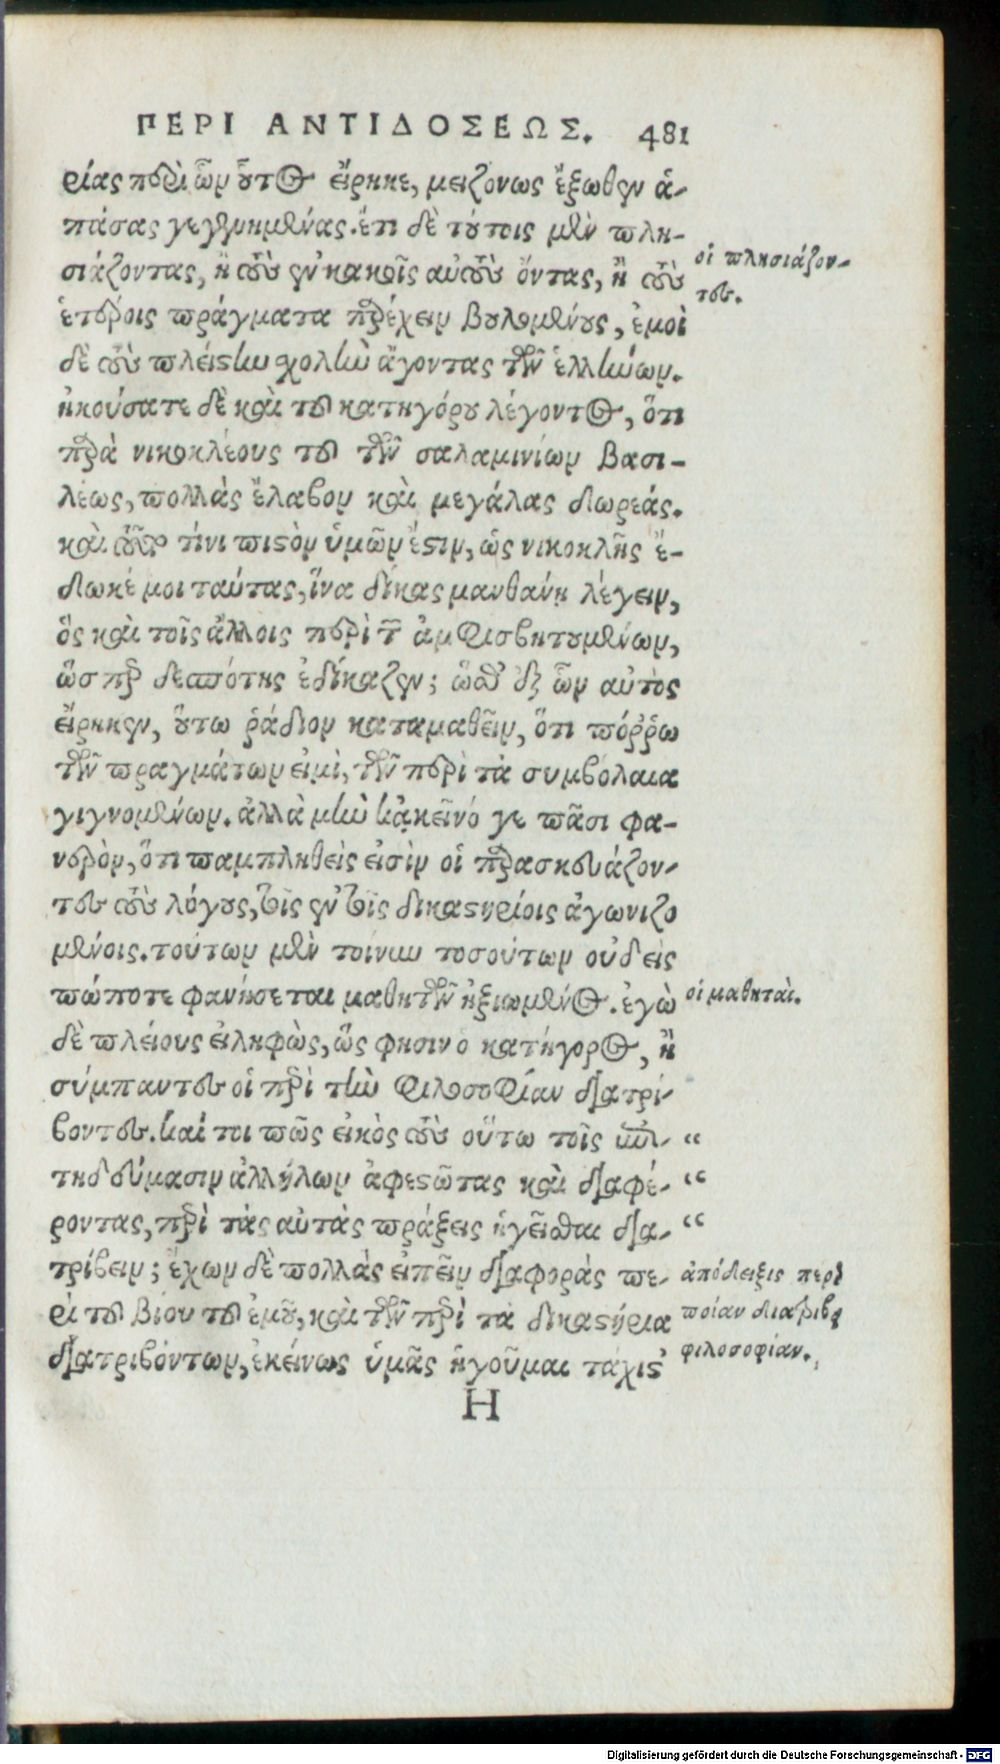 ΠΕΡΙ ΑΝΤΙΔΟΣΕΩΣ. 481
ρίας περὶ ὧν οὗτος εἴρηκε, μειζόνως ἔξωθεν ἁ-
πάσας γεγενημένας. ἔτι δὲ τούτοις μὲν πλη-
σιάζοντας, ἢ τοὺς ἐν κακοῖς αὐτοὺς ὄντας, ἢ τοὺς
ἑτέροις πράγματα παρέχειν βουλομένους, ἐμοὶ
δὲ τοὺς πλείστην σχολὴν ἄγοντας τῶν ἑλλήνων.
ἠκούσατε δὲ καὶ τοῦ κατηγόρου λέγοντος, ὅτι
παρὰ νικοκλέους τοῦ τῶν σαλαμινίων βασι-
λέως, πολλὰς ἔλαβον καὶ μεγάλας δωρεάς.
καὶ τοι τίνι πιστὸν ὑμῶν ἐστιν, ὡς νικοκλῆς ἔ-
δωκέ μοι ταύτας, ἵνα δίκας μανθάνῃ λέγειν,
ὃς καὶ τοῖς ἄλλοις περὶ τῶν ἀμφισβητουμένων,
ὥσπερ δεσπότης ἐδίκαζεν; ὥσθ' ἐξ ὧν αὐτὸς
εἴρηκεν, οὕτω ῥάδιον καταμαθεῖν, ὅτι πόῤῥω
τῶν πραγμάτων εἰμὶ, τῶν περὶ τὰ συμβόλαια
γιγνομένων. ἀλλὰ μὴν κἀκεῖνό γε πᾶσι φα-
νερὸν, ὅτι παμπληθεῖς εἰσὶν οἱ παρασκευάζον-
τες τοὺς λόγους, τοῖς ἐν τοῖς δικαστηρίοις ἀγωνιζο
μένοις. τούτων μὲν τοίνυν τοσούτων οὐδεὶς
πώποτε φανήσεται μαθητῶν ἠξιωμένος. ἐγὼ
δὲ πλείους εἰληφὼς, ὥς φησιν ὁ κατήγορος, ἢ
σύμπαντες οἱ περὶ τὴν φιλοσοφίαν διατρί-
βοντες. καί τοι πῶς εἰκὸς τοὺς οὕτω τοῖς ἐπι- “
τηδεύμασιν ἀλλήλων ἀφεστῶτας καὶ διαφέ- “
ροντας, περὶ τὰς αὐτὰς πράξεις ἡγεῖσθαι δια- “
τρίβειν; ἔχων δὲ πολλὰς εἰπεῖν διαφορὰς πε-
ρὶ τοῦ βίου τοῦ ἐμοῦ, καὶ τῶν περὶ τὰ δικαστήρια
διατριβόντων, ἐκείνως ὑμᾶς ἡγοῦμαι τάχιστ'
Η
οἱ πλησιάζον-
τες.
οἱ μαθηταὶ.
ἀπόδειξις περὶ
ποίαν διατριβῃ
φιλοσοφίαν.
Digitalisierung gefördert durch die Deutsche Forschungsgemeinschaft - DFG